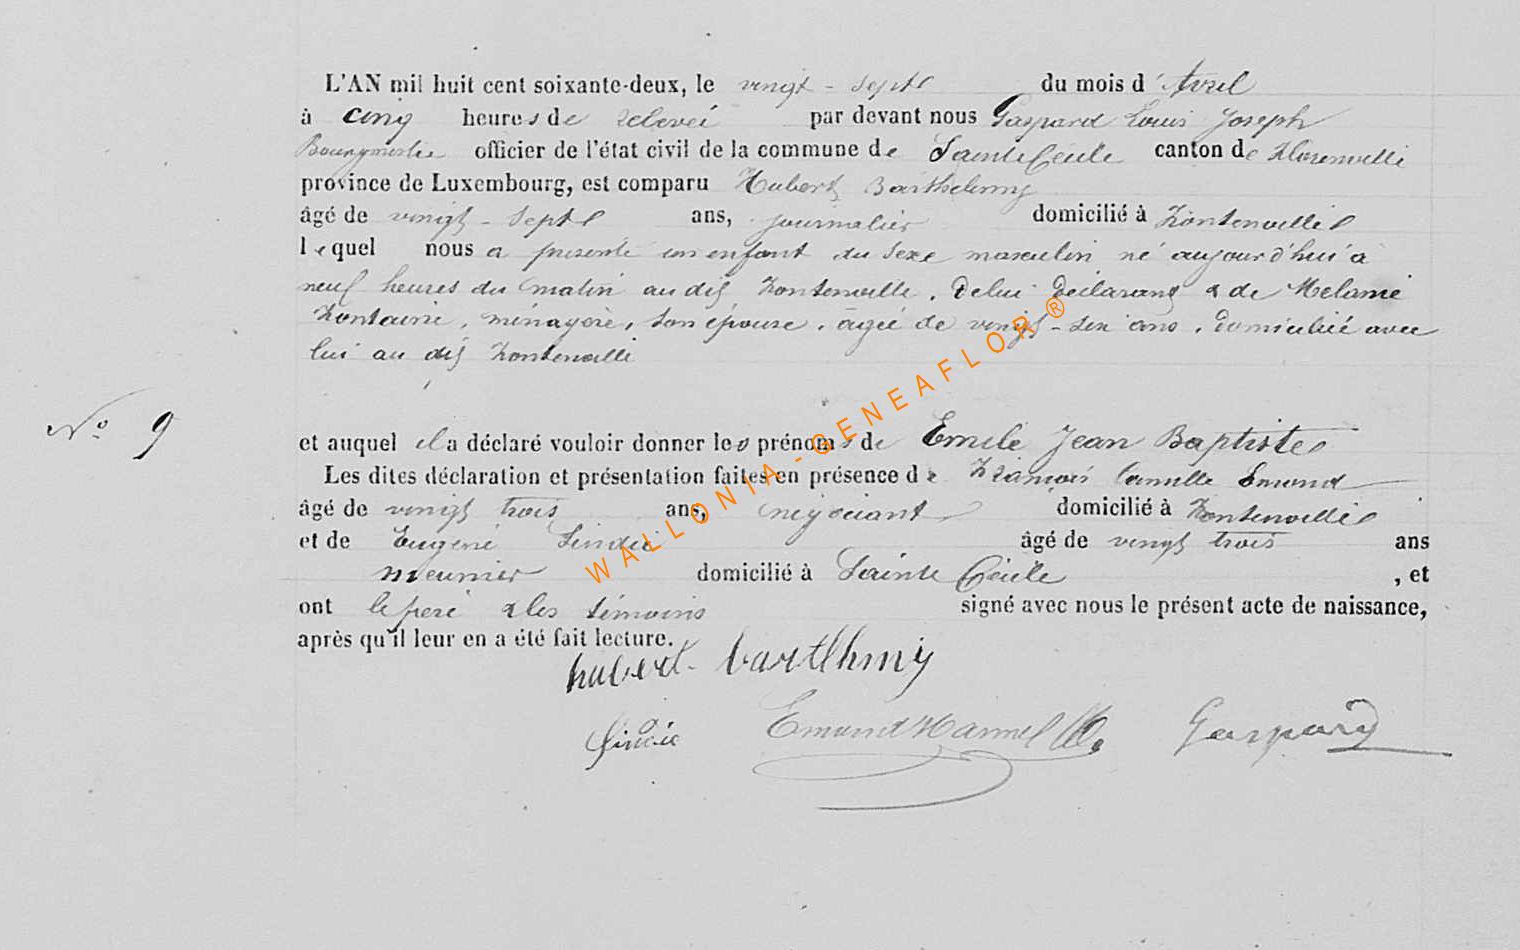 L'AN mil huit cent soixante-deux, le vingt-sept du mois d'Avril
à cinq heures de relevée par devant nous Gaspard Louis Joseph
Bourgmestre officier de l'état civil de la commune de Sainte Cécile canton de Florenville
province de Luxembourg, est comparu Hubert Barthelemy
âgé de vingt-sept ans, journalier domicilié à Fontenoille
lequel nous a présenté un enfant du sexe masculin né aujourd'hui à
neuf heures du matin au dit Fontenoille, de lui déclarant & de Mélanie
Fontaine, ménagère, son épouse, âgée de vingt-six ans, domiciliée avec
lui au dit Fontenoille
N° 9
et auquel il a déclaré vouloir donner les prénoms de Emile Jean Baptiste
Les dites déclaration et présentation faites en présence de François Camille Emond
âgé de vingt trois ans, négociant domicilié à Fontenoille
et de Eugène âgé de vingt trois ans
meunier domicilié à Sainte Cécile, et
ont le père & les témoins signé avec nous le présent acte de naissance,
après qu'il leur en a été fait lecture.
hubert barthlmy
Emond Gaspard
WALLONIA-GENEAFLOR®